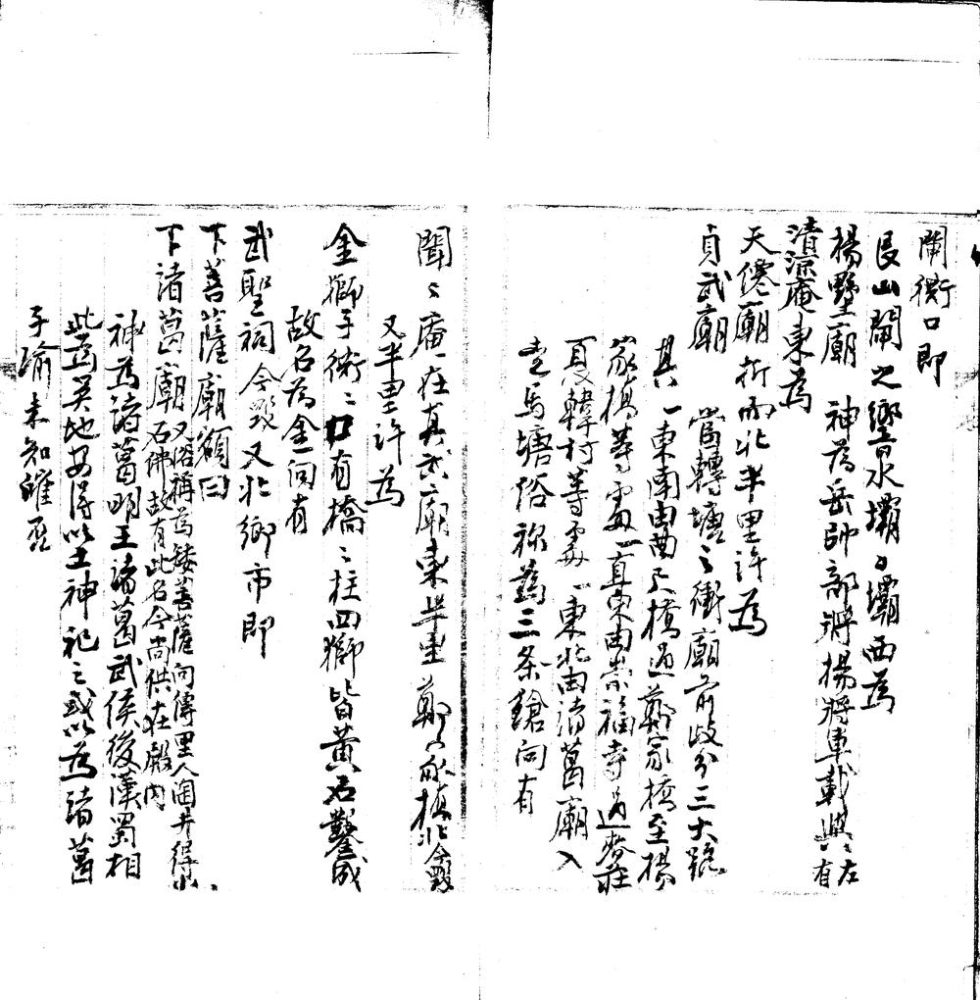 閘衖口即
艮山閘之響水壩〻壩西為
楊墅廟　神為岳帥部將楊將軍載興〻左有
清涼庵東為
天僊廟折而北半里許為
貞武廟　當轉塘之衝廟前歧分三大號
其一東南由曲尺橋過鄭家橋至楊
家橋等處一直東由崇福寺過蔡莊
夏韓村等處一東北由諸葛廟入
走馬塘俗稱為三条鎗向有
聞〻庵在真武廟東半里鄭家橋北今毀
又半里許為
金獅子衖〻口有橋〻柱四獅皆黃石鑿成
故名為金一向有
武聖祠今毀又北鄉市即
下菩薩廟額曰
下諸葛廟又俗稱為矮菩薩向傳里人淘井得小石佛故有此名今尚供在殿內
神為諸葛明王諸葛武侯後漢蜀相
此為吳地安得以土神祀之或以為諸葛
子瑜未知確否